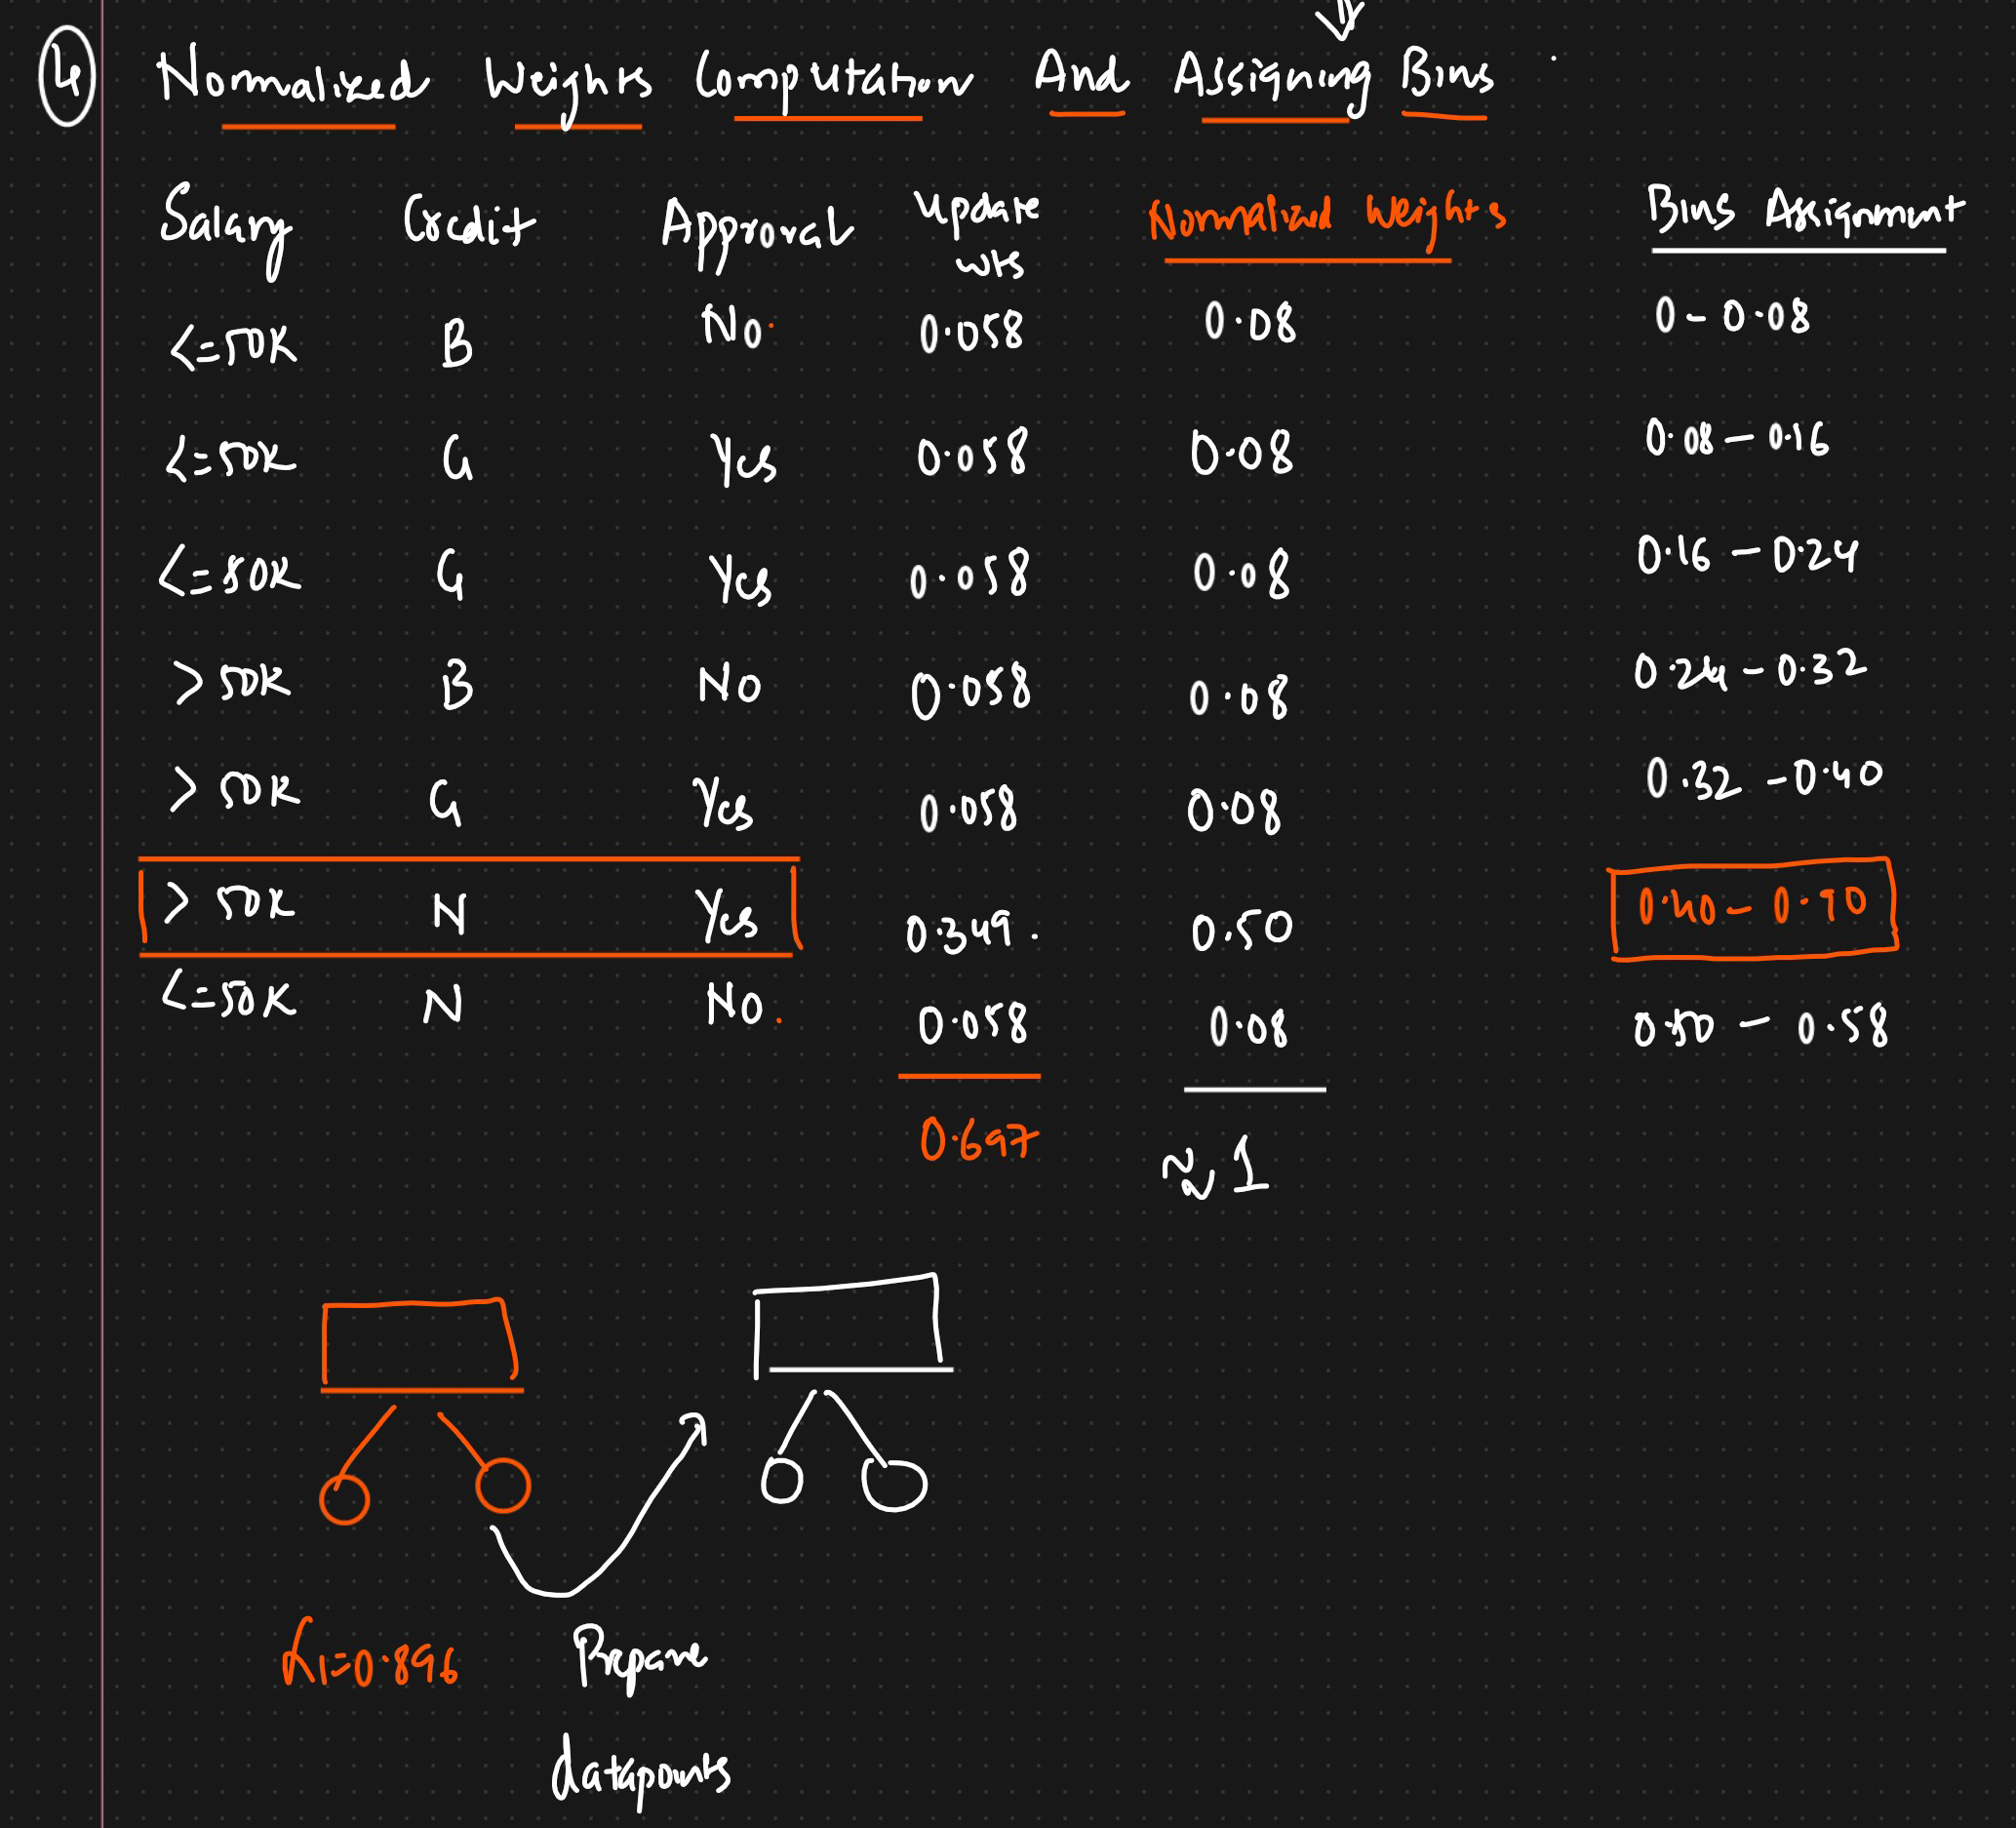 4 Normalized Weights Computation And Assigning Bins
Salary Credit Approval Update wts Normalized Weights Bins Assignment
<=50K B No 0.058 0.08 0 - 0.08
<=50K G Yes 0.058 0.08 0.08 - 0.16
<=50K G Yes 0.058 0.08 0.16 - 0.24
>50K B No 0.058 0.08 0.24 - 0.32
>50K G Yes 0.058 0.08 0.32 - 0.40
>50K N Yes 0.349 0.50 0.40 - 0.90
<=50K N No 0.058 0.08 0.50 - 0.58
0.697 ≈ 1
α1=0.896 Prepare
datapoints